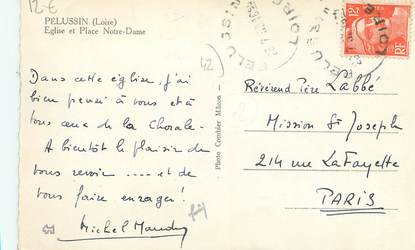 12€
PÉLUSSIN (Loire)
Eglise et Place Notre-Dame
42
Dans cette église, j'ai
bien pensé à vous et à
tous ceux de la Chorale.
A bientôt le plaisir de
vous revoir .... et de
vous faire enrager!
Michel
Photo Combier Mâcon
PELUSSIN
LOIRE
Révérend Père Labbé
Mission St Joseph
214 rue LaFayette
PARIS